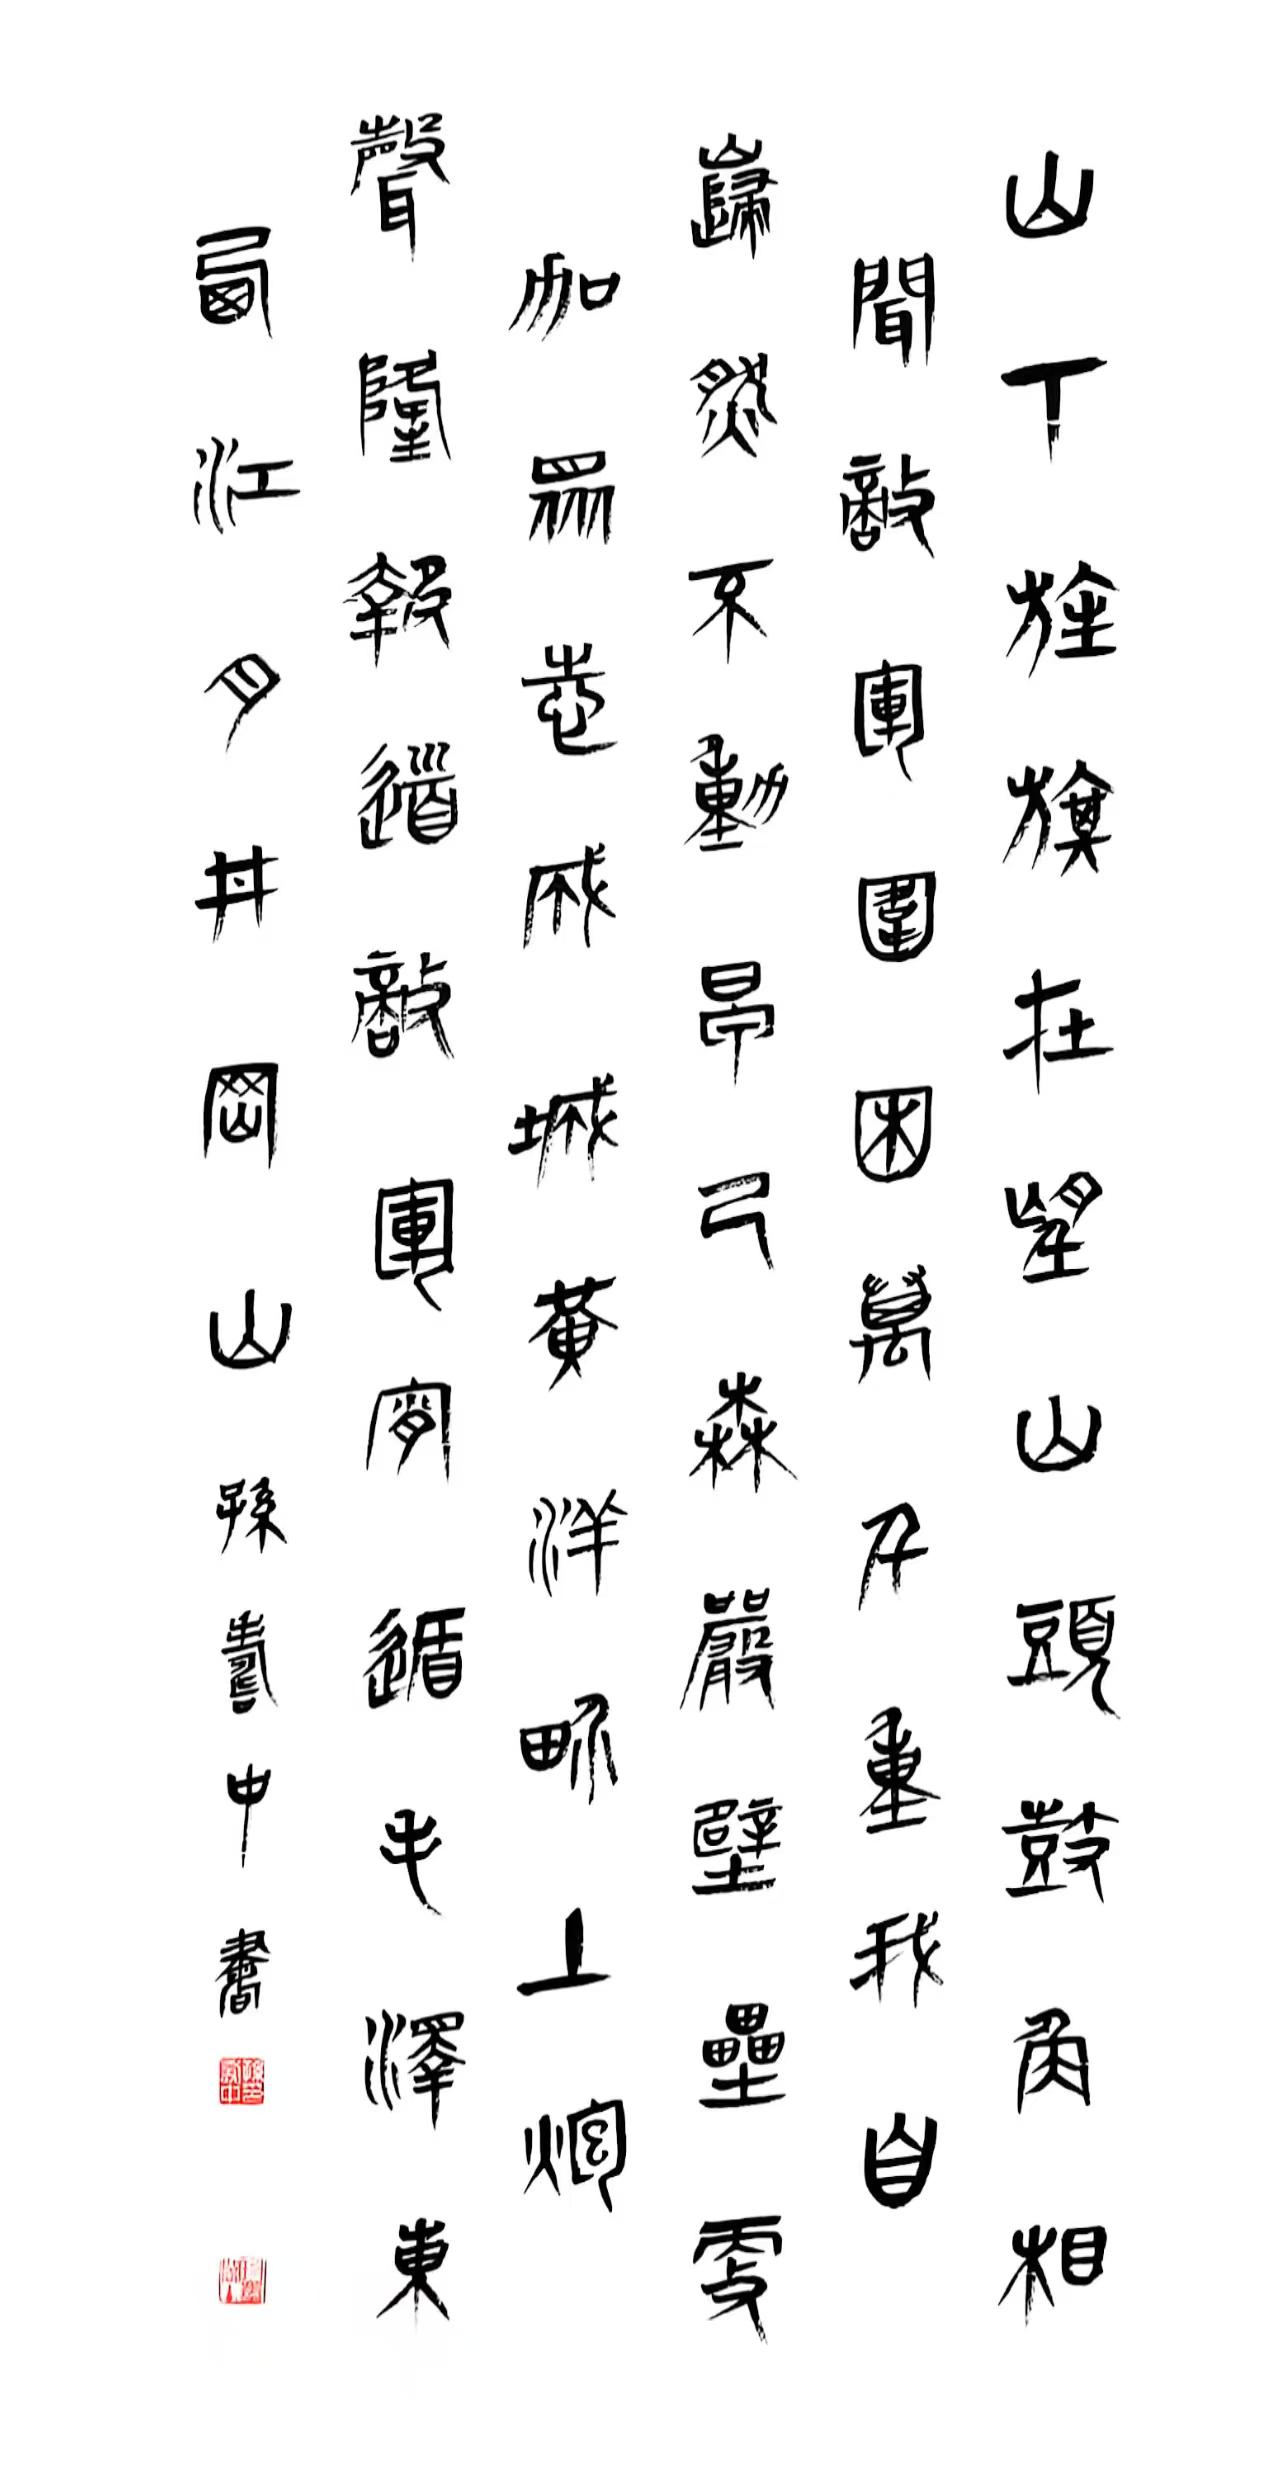 山下旌旗在望山頭鼓角相
聞敵軍圍困萬千重我自
巋然不動早已森嚴壁壘更
加眾志成城黃洋畍上炮
聲隆報道敵軍宵遁毛澤東
西江月井岡山孫壽中書